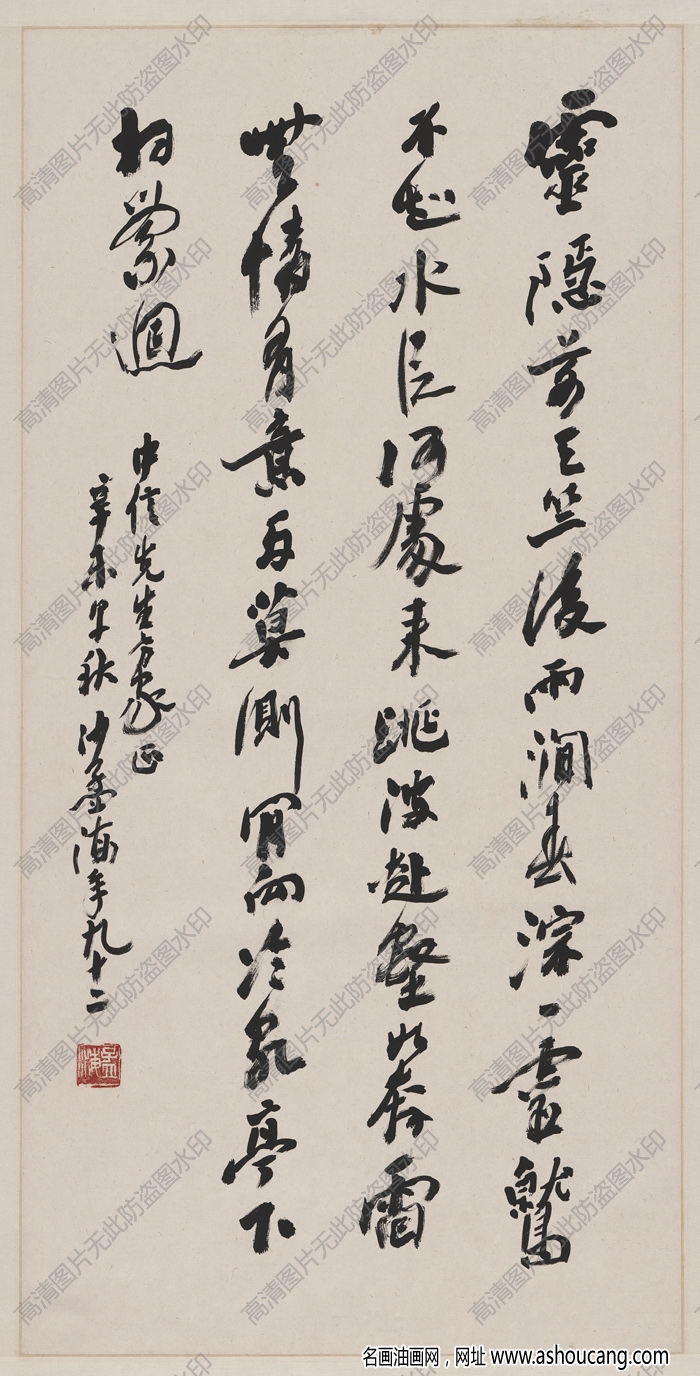 靈隱前天竺後兩澗春淙一靈鷲
不知水從何處來跳波赴壑如奔雷
無情有意兩莫測肯向冷泉亭下
相縈迴
中信先生方家正
辛未早秋沙孟海年九十二
孟海
高清图片无此防盗图水印
名画油画网，网址 www.ashoucang.com